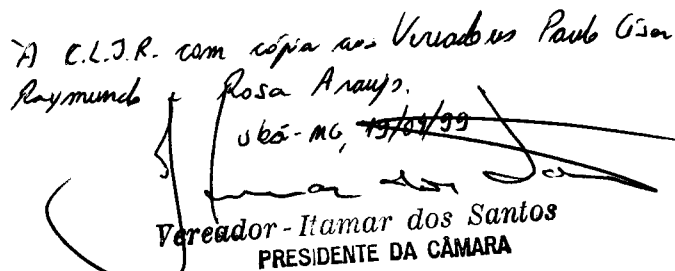 À C.L.J.R. com cópia aos Vereadores Paulo César
Raymundo e Rosa Araujo.
Ubá-MG, 19/04/99
Vereador - Itamar dos Santos
PRESIDENTE DA CÂMARA